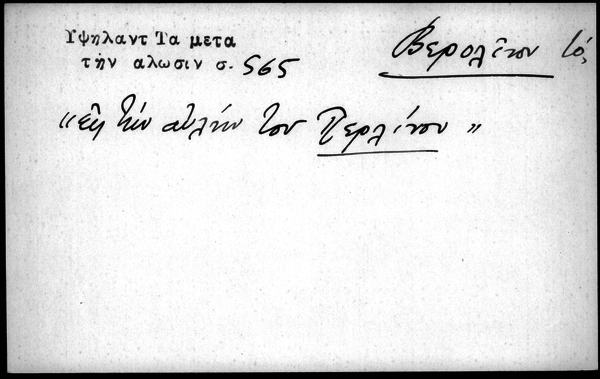 Υψηλαντ Τα μετα
τὴν αλωσιν σ. 565
Βερολῖνον τό,
"εἰς τὴν αὐλὴν του Περλίνου"